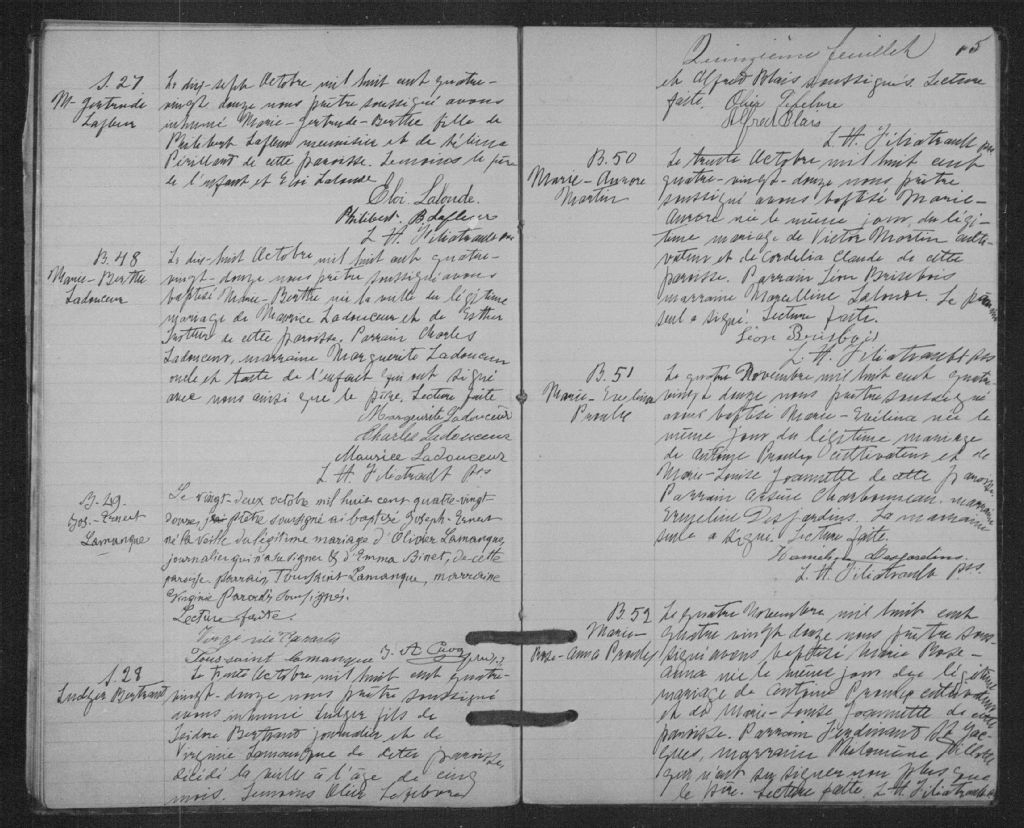 S. 27
M- Gertrude
Lafleur
Le dix-sept Octobre mil huit cent quatre-
vingt douze nous prêtre soussigné avons
inhumé Marie-Gertrude-Berthe fille de
Philibert Lafleur meunisier et de Délima
de cette paroisse. Temoins le père
de l'enfant et Eloi Lalonde
Eloi Lalonde.
Philibert Lafleur
L. H. Filiatrault
B. 48
Marie-Berthe
Ladouceur
Le dix-huit Octobre mil huit cent quatre-
vingt-douze nous prêtre soussigné avons
baptisé Marie-Berthe née la veille du légitime
mariage de Maurice Ladouceur et de Esther
de cette paroisse. Parrain Charles
Ladouceur, marraine Marguerite Ladouceur
oncle et tante de l'enfant qui ont signé
avec nous ainsi que le père. Lecture faite
Marguerite Ladouceur
Charles Ladouceur
Maurice Ladouceur
L. H. Filiatrault pss
B. 49
Jos.-Ernest
Lamanque
Le vingt-deux octobre mil huit cent quatre-vingt
douze, prêtre soussigné ai baptisé Joseph-Ernest
né la veille du légitime mariage d'Olivier Lamanque,
journalier qui n'a su signer & d'Emma Binet, de cette
paroisse. parrain, Toussaint-Lamanque, marraine
Virginie Paradis soussignés.
Lecture faite.
Toussaint Lamanque
S. 28
Ludger Bertrand
Le trente Octobre mil huit cent quatre-
vingt-douze nous prêtre soussigné
avons inhumé Ludger fils de
Isidore Bertrand journalier et de
Virginie Lamanque de cette paroisse,
décédé la veille à l'âge de cinq
mois. Temoins Olier Lefebvre
Quinzième feuillet 15
et Alfred Blais soussignés. Lecture
faite. Olier Lefebvre
Alfred Blais
L. H. Filiatrault
B. 50
Marie-Aurore
Martin
Le trente Octobre mil huit cent
quatre-vingt-douze nous prêtre
soussigné avons baptisé Marie-
Aurore née le même jour du légi-
time mariage de Victor Martin culti-
vateur et de Cordelia Claude de cette
paroisse. Parrain Léon Brisebois
marraine Marcelline Lalonde. Le parrain
seul a signé. Lecture faite.
Léon Brisbois
L. H. Filiatrault pss
B. 51
Marie-Evelina
Proulx
Le quatre Novembre mil huit cent quatre-
vingt douze nous prêtre soussigné
avons baptisé Marie-Evelina née le
même jour du légitime mariage
de Antoine Proulx cultivateur et de
Marie-Louise Joannette de cette paroisse
Parrain Arsène Charbonneau, marraine
Ermeline Desjardins. La marraine
seule a signé. Lecture faite.
Desjardins
L. H. Filiatrault pss.
B. 52
Marie-
Rose-Anna Proulx
Le quatre Novembre mil huit cent
quatre vingt douze nous prêtre sous-
signé avons baptisé Marie Rose-
Anna née le même jour du légitime
mariage de Antoine Proulx cultivateur
et de Marie-Louise Joannette de cette
paroisse. Parrain Ferdinand St Jac-
ques, marraine Philomène
qui n'ont su signer non plus que
le père. Lecture faite. L. H. Filiatrault